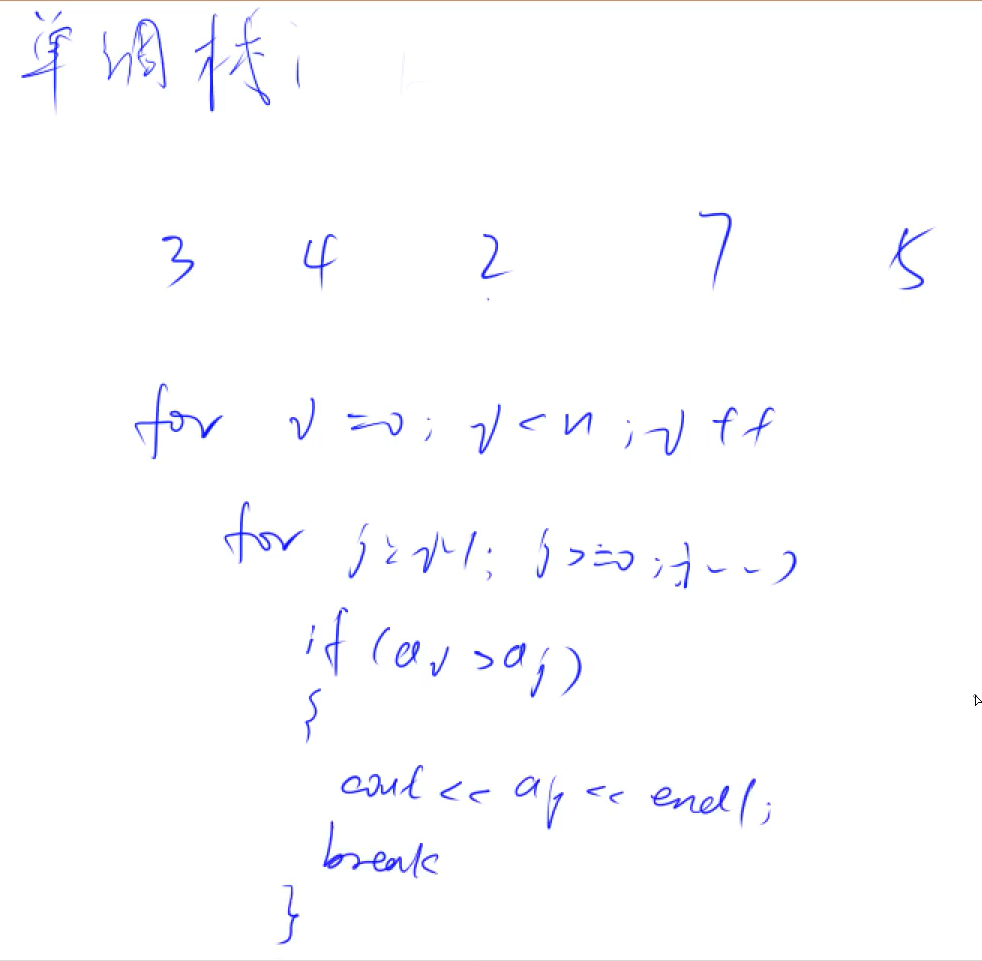 单调栈：
3 4 2 7 5
for i=0; i<n; i++
for j=i-1; j>=0; j--)
if (ai>aj)
{
cout << aj << endl;
break
}